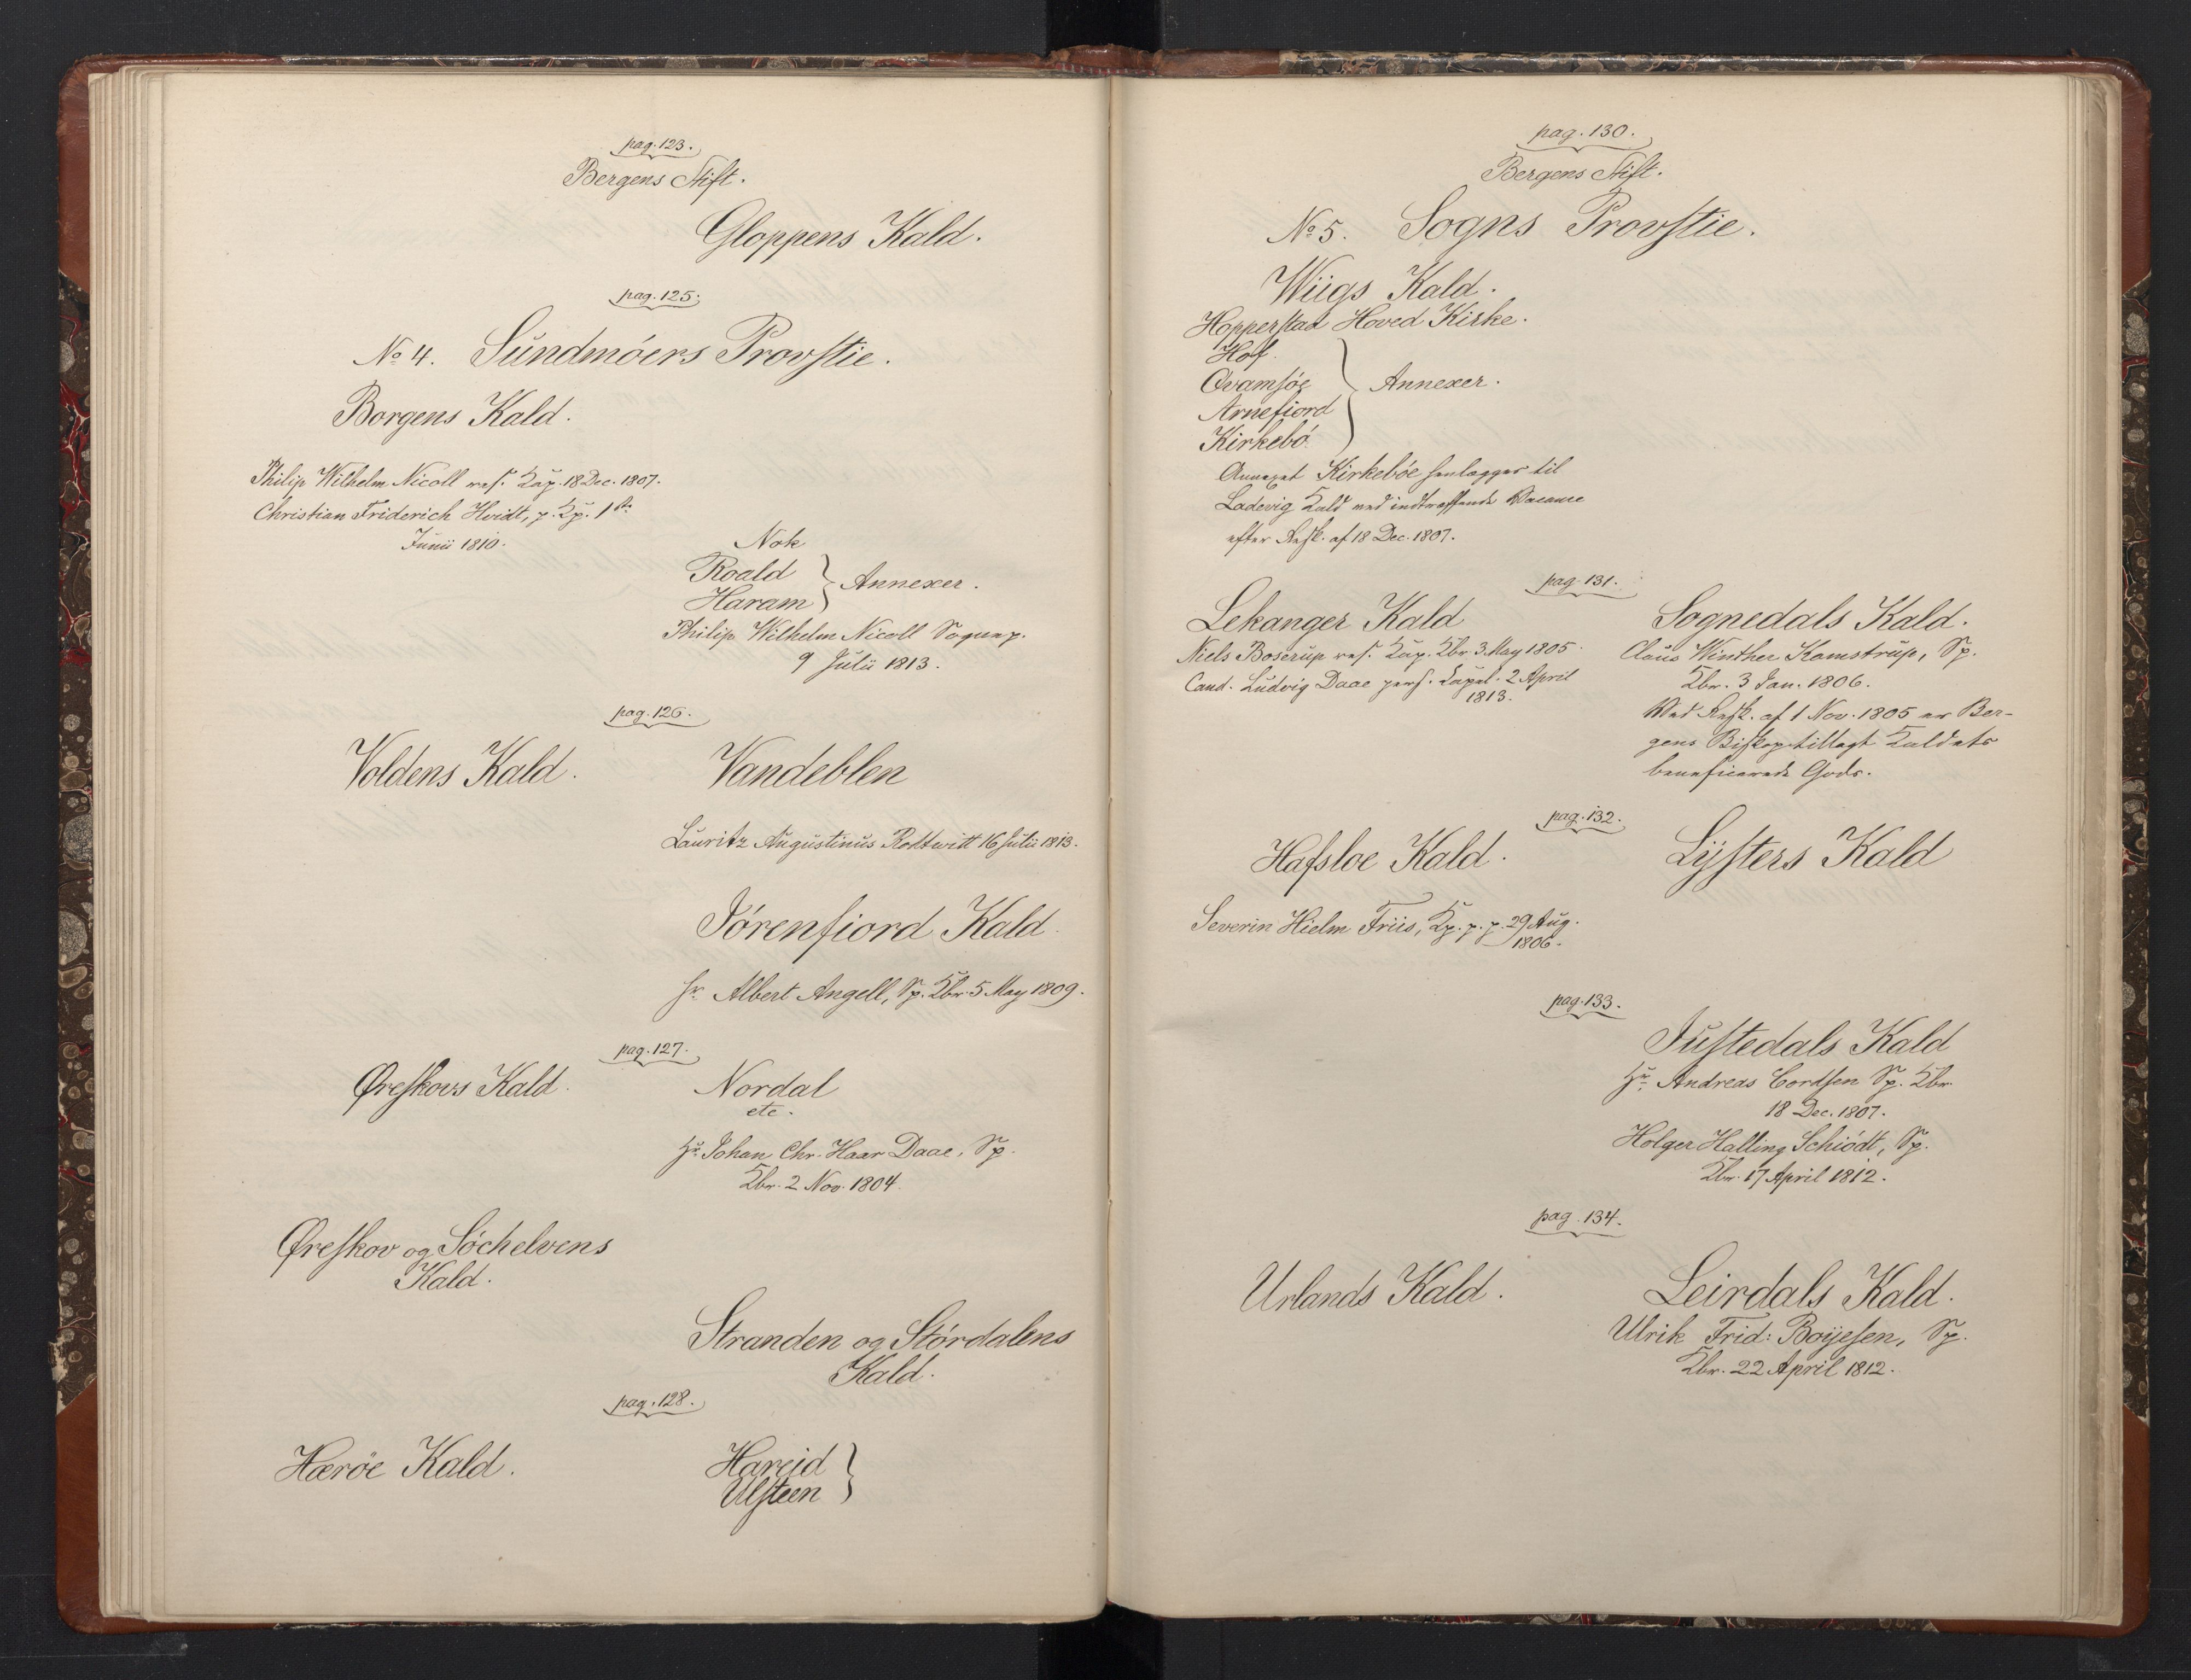 pag. 123.
Bergens Stift.
Gloppens Kald.
pag. 125.
No 4. Sundmöers Provstie.
Borgens Kald.
Philip Wilhelm Nicoll res. Kap. 18 Dec. 1807.
Christian Friderich Hvidt, p. Kp. 1ste
Junii 1810.
Nok
Roald
Haram
Annexer.
Philip Wilhelm Nicoll Sognep.
9 Julii 1813.
pag. 126.
Voldens Kald.
Vandeblen
Lauritz Augustinus Rottwitt 16 Julii 1813.
Jörenfiord Kald
Hr. Albert Angell, Sp. Kbr. 5 May 1809.
pag. 127.
Ørskovs Kald.
Nordal
etc.
Hr. Johan Chr. Haar Daae, Sp.
Kbr. 2 Nov. 1804.
Ørskov og Söchelvens
Kald.
Stranden og Stördalens
Kald.
pag. 128.
Herøe Kald.
Hareid
Ulsteen
pag. 130.
Bergens Stift.
No 5. Sogns Provstie.
Wiigs Kald.
Hopperstad Hoved Kirke.
Hof.
Qvamsøe
Arnefiord
Kirkebö
Annexer.
Annexet Kirkebøe henlægges til
Ladevig Kald ved indtræffende Vacance
efter Resk. af 18 Dec. 1807.
pag. 131.
Lekanger Kald
Niels Boserup res. Kap. Kbr. 3 May 1805.
Cand. Ludvig Daae pers. Kapel. 2 April
1813.
Sognedals Kald.
Claus Winther Kamstrup, Sp.
Kbr. 3 Jan. 1806.
Ved Resk. af 1 Nov. 1805 er Ber-
gens Biskop tillagt Kaldets
beneficerede Gods.
pag. 132.
Hafsloe Kald.
Severin Hielm Friis, Kp. p. p. 29 Aug.
1806.
Lysters Kald
pag. 133.
Justedals Kald
Hr. Andreas Cordsen Sp. Kbr.
18 Dec. 1807.
Holger Halling Schiödt, Sp.
Kbr. 17 April 1812.
pag. 134.
Urlands Kald.
Leirdals Kald.
Ulrik Frid: Boyesen, Sp.
Kbr. 22 April 1812.